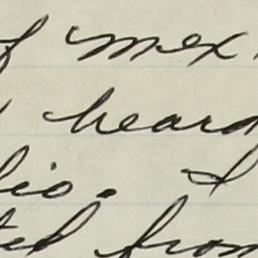 of mex
heard
io. I
ted from